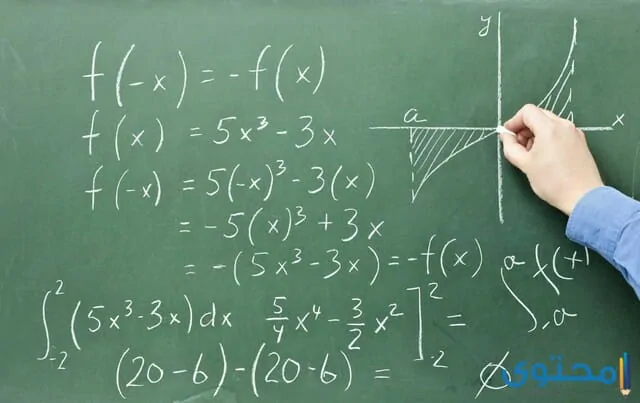 f(-x) = -f(x)
f(x) = 5x³ - 3x
f(-x) = 5(-x)³ - 3(x)
= -5(x)³ + 3x
= -(5x³ - 3x) = -f(x)
∫₋₂² (5x³ - 3x)dx  5/4 x⁴ - 3/2 x² ]₋₂² = ∫₋ₐᵃ f(x)
(20 - 6) - (20 - 6) = ∅
y
a
x
محتوى